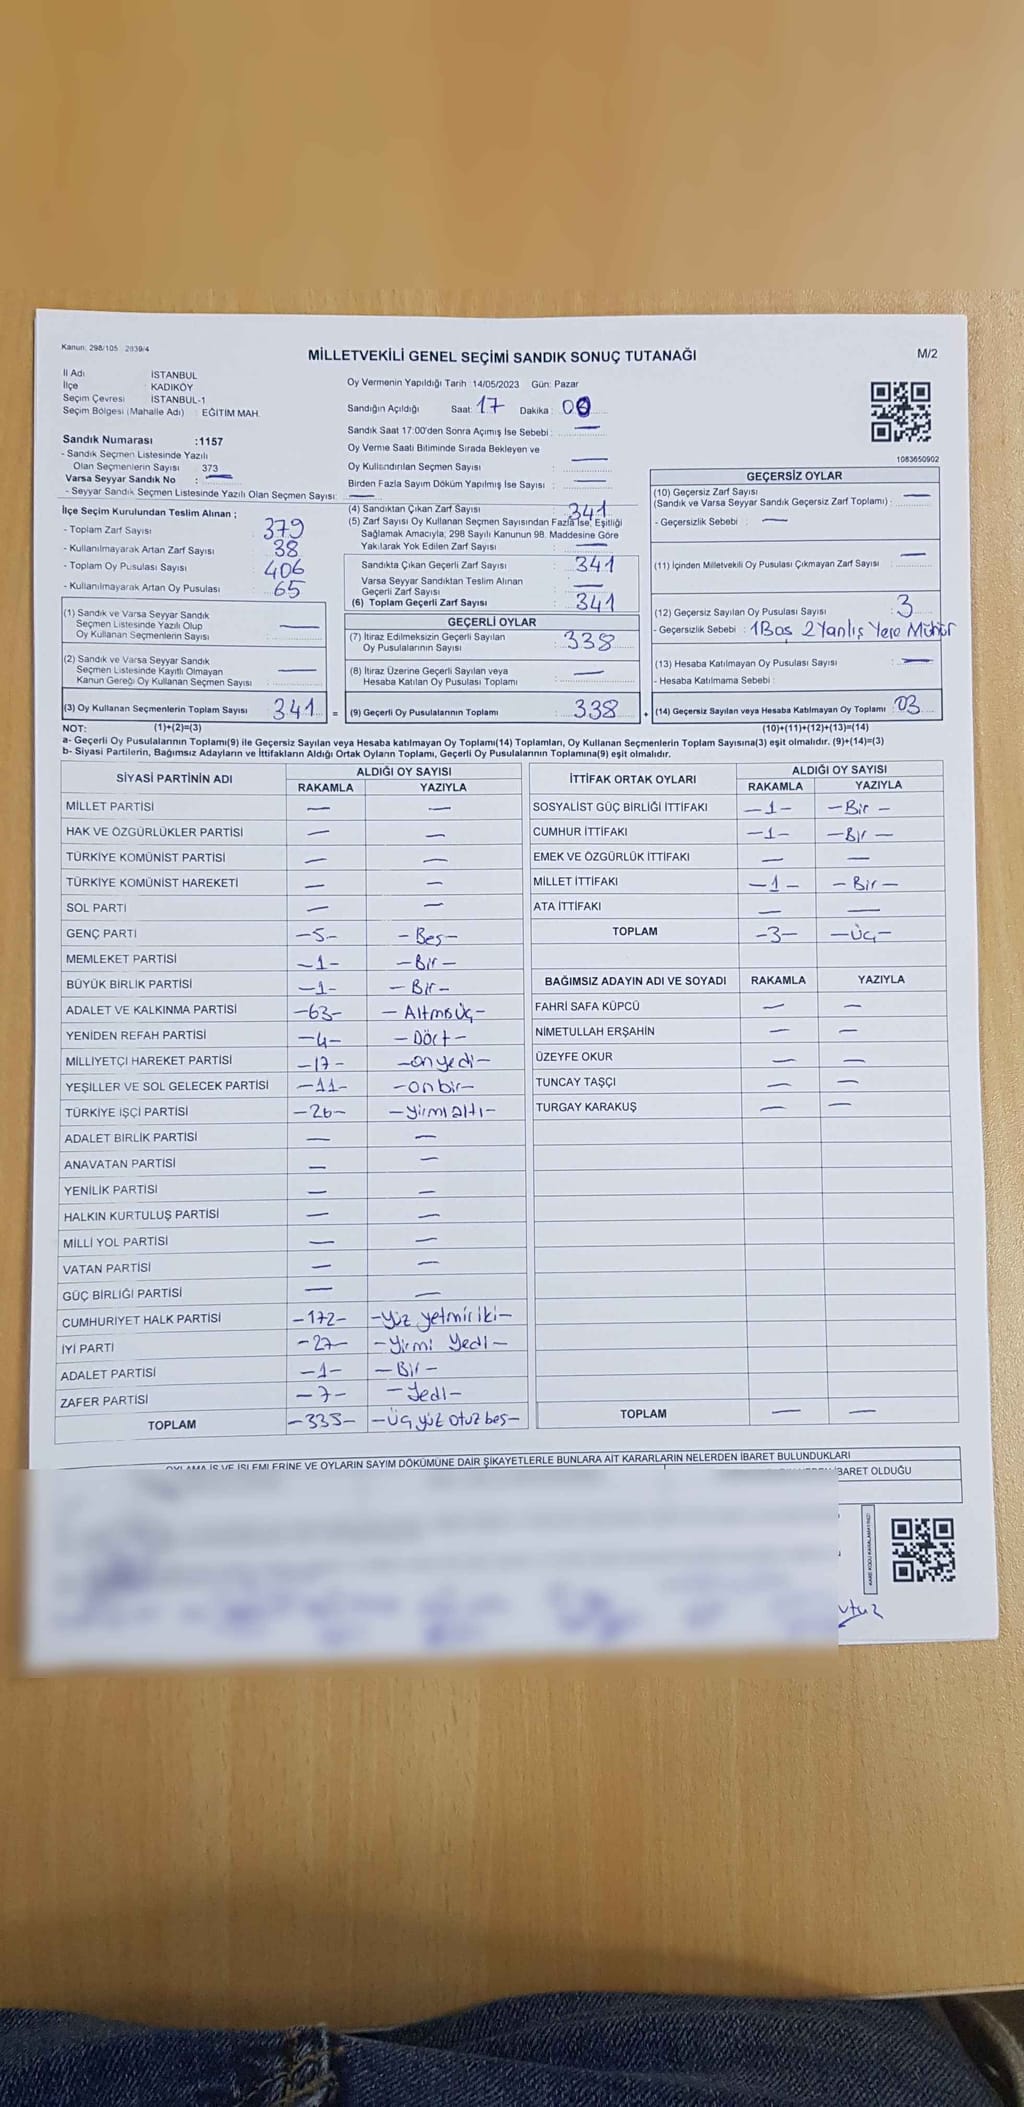 Kanun: 298/105 2839/4
MİLLETVEKİLİ GENEL SEÇİMİ SANDIK SONUÇ TUTANAĞI
M/2
İl Adı İSTANBUL
İlçe : KADIKÖY
Seçim Çevresi : İSTANBUL-1
Seçim Bölgesi (Mahalle Adı) : EĞİTİM MAH.
Oy Vermenin Yapıldığı Tarih 14/05/2023 Gün: Pazar
Sandığın Açıldığı Saat: 17 Dakika : 00
Sandık Saat 17:00'den Sonra Açımış İse Sebebi : —
Oy Verme Saati Bitiminde Sırada Bekleyen ve
Oy Kullandırılan Seçmen Sayısı : —
Birden Fazla Sayım Döküm Yapılmış İse Sayısı : —
1083650902
Sandık Numarası :1157
- Sandık Seçmen Listesinde Yazılı
Olan Seçmenlerin Sayısı 373
Varsa Seyyar Sandık No : —
- Seyyar Sandık Seçmen Listesinde Yazılı Olan Seçmen Sayısı: —
İlçe Seçim Kurulundan Teslim Alınan ;
- Toplam Zarf Sayısı : 379
- Kullanılmayarak Artan Zarf Sayısı : 38
- Toplam Oy Pusulası Sayısı : 406
- Kullanılmayarak Artan Oy Pusulası : 65
(1) Sandık ve Varsa Seyyar Sandık
Seçmen Listesinde Yazılı Olup
Oy Kullanan Seçmenlerin Sayısı : —
(2) Sandık ve Varsa Seyyar Sandık
Seçmen Listesinde Kayıtlı Olmayan
Kanun Gereği Oy Kullanan Seçmen Sayısı : —
(3) Oy Kullanan Seçmenlerin Toplam Sayısı : 341 =
(4) Sandıktan Çıkan Zarf Sayısı : 341
(5) Zarf Sayısı Oy Kullanan Seçmen Sayısından Fazla İse, Eşitliği
Sağlamak Amacıyla; 298 Sayılı Kanunun 98. Maddesine Göre
Yakılarak Yok Edilen Zarf Sayısı : —
Sandıkta Çıkan Geçerli Zarf Sayısı : 341
Varsa Seyyar Sandıktan Teslim Alınan
Geçerli Zarf Sayısı : —
(6) Toplam Geçerli Zarf Sayısı : 341
GEÇERLİ OYLAR
(7) İtiraz Edilmeksizin Geçerli Sayılan
Oy Pusulalarının Sayısı : 338
(8) İtiraz Üzerine Geçerli Sayılan veya
Hesaba Katılan Oy Pusulası Toplamı : —
(9) Geçerli Oy Pusulalarının Toplamı : 338 +
GEÇERSİZ OYLAR
(10) Geçersiz Zarf Sayısı
(Sandık ve Varsa Seyyar Sandık Geçersiz Zarf Toplamı) : —
- Geçersizlik Sebebi : —
(11) İçinden Milletvekili Oy Pusulası Çıkmayan Zarf Sayısı : —
(12) Geçersiz Sayılan Oy Pusulası Sayısı : 3
- Geçersizlik Sebebi : 1 Boş 2 Yanlış Yere Mühür
(13) Hesaba Katılmayan Oy Pusulası Sayısı : —
- Hesaba Katılmama Sebebi :
(14) Geçersiz Sayılan veya Hesaba Katılmayan Oy Toplamı : 03
NOT: (1)+(2)=(3) (10)+(11)+(12)+(13)=(14)
a- Geçerli Oy Pusulalarının Toplamı(9) ile Geçersiz Sayılan veya Hesaba katılmayan Oy Toplamı(14) Toplamları, Oy Kullanan Seçmenlerin Toplam Sayısına(3) eşit olmalıdır. (9)+(14)=(3)
b- Siyasi Partilerin, Bağımsız Adayların ve İttifakların Aldığı Ortak Oyların Toplamı, Geçerli Oy Pusulalarının Toplamına(9) eşit olmalıdır.
SİYASİ PARTİNİN ADI ALDIĞI OY SAYISI
RAKAMLA YAZIYLA
MİLLET PARTİSİ — —
HAK VE ÖZGÜRLÜKLER PARTİSİ — —
TÜRKİYE KOMÜNİST PARTİSİ — —
TÜRKİYE KOMÜNİST HAREKETİ — —
SOL PARTİ — —
GENÇ PARTİ -5- -Beş-
MEMLEKET PARTİSİ -1- -Bir-
BÜYÜK BİRLİK PARTİSİ -1- -Bir-
ADALET VE KALKINMA PARTİSİ -63- -Altmışüç-
YENİDEN REFAH PARTİSİ -4- -Dört-
MİLLİYETÇİ HAREKET PARTİSİ -17- -onyedi-
YEŞİLLER VE SOL GELECEK PARTİSİ -11- -onbir-
TÜRKİYE İŞÇİ PARTİSİ -26- -Yirmialtı-
ADALET BİRLİK PARTİSİ — —
ANAVATAN PARTİSİ — —
YENİLİK PARTİSİ — —
HALKIN KURTULUŞ PARTİSİ — —
MİLLİ YOL PARTİSİ — —
VATAN PARTİSİ — —
GÜÇ BİRLİĞİ PARTİSİ — —
CUMHURİYET HALK PARTİSİ -172- -Yüz yetmiş iki-
İYİ PARTİ -27- -Yirmi Yedi-
ADALET PARTİSİ -1- -Bir-
ZAFER PARTİSİ -7- -Yedi-
TOPLAM -335- -Üç yüz otuz beş-
İTTİFAK ORTAK OYLARI ALDIĞI OY SAYISI
RAKAMLA YAZIYLA
SOSYALİST GÜÇ BİRLİĞİ İTTİFAKI -1- -Bir-
CUMHUR İTTİFAKI -1- -Bir-
EMEK VE ÖZGÜRLÜK İTTİFAKI — —
MİLLET İTTİFAKI -1- -Bir-
ATA İTTİFAKI — —
TOPLAM -3- -Üç-
BAĞIMSIZ ADAYIN ADI VE SOYADI RAKAMLA YAZIYLA
FAHRİ SAFA KÜPCÜ — —
NİMETULLAH ERŞAHİN — —
ÜZEYFE OKUR — —
TUNCAY TAŞÇI — —
TURGAY KARAKUŞ — —
TOPLAM — —
OYLAMA İŞ VE İŞLEMLERİNE VE OYLARIN SAYIM DÖKÜMÜNE DAİR ŞİKAYETLERLE BUNLARA AİT KARARLARIN NELERDEN İBARET BULUNDUKLARI
İBARET OLDUĞU